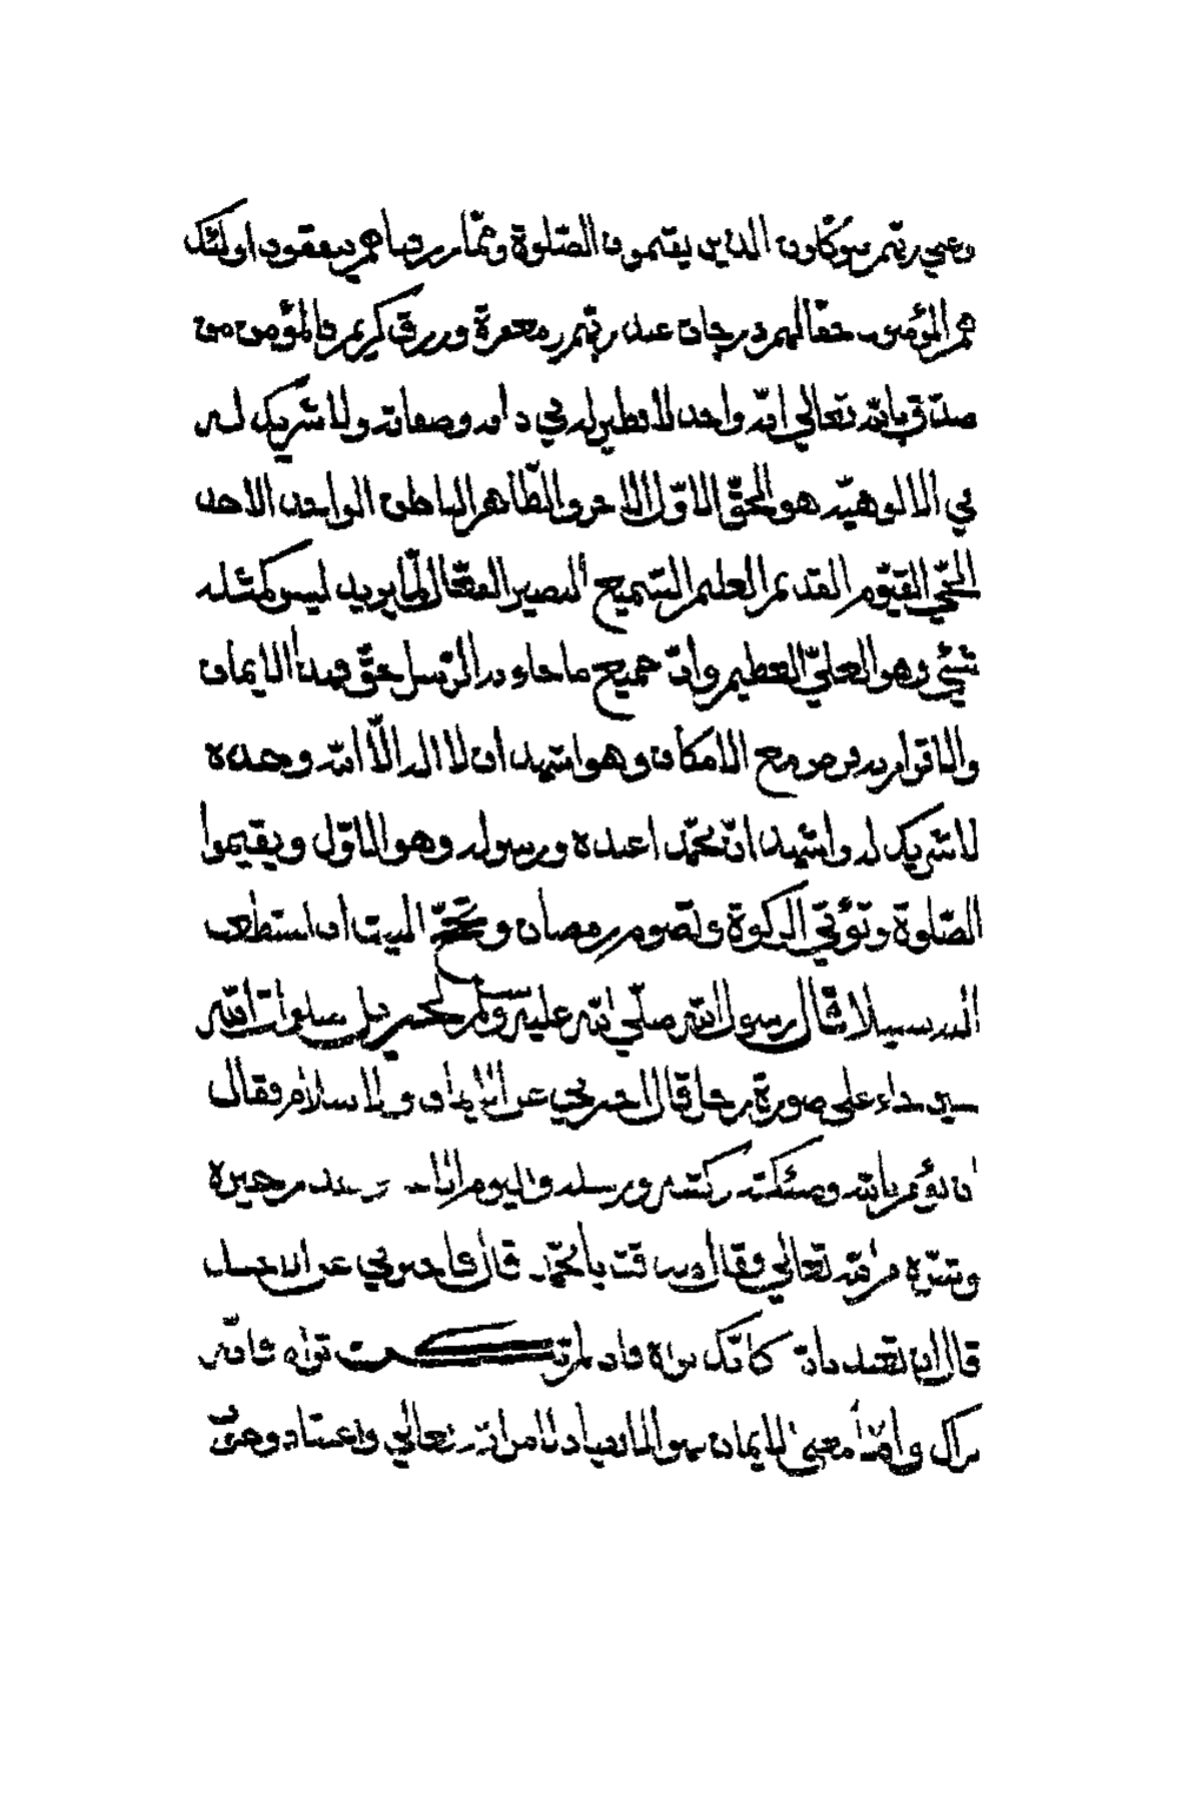 وعلى ربهم يتوكلون الذين يقيمون الصلوة ومما رزقناهم ينفقون اولئك
هم المؤمنون حقا لهم درجات عند ربهم ومغفرة ورزق كريم فالمؤمن من
صدق بالله تعالى انه واحد لا نظير له في ذاته وصفاته ولا شريك له
في الالوهيّه هو الحقّ الاوّل الاخر والظّاهر الباطن الواحد الاحد
الحيّ القيّوم القديم العليم السّميع البصير الفعّال لما يريد ليس كمثله
شيئ وهو العليّ العظيم وانّ جميع ما جاء به الرّسل حقّ فهذا الايمان
والاقرار به فرض مع الامكان وهو اشهد ان لا اله الّا الله وحده
لا شريك له واشهد انّ محمّدا عبده ورسوله وهو الاوّل ويقيموا
الصّلوة وتؤتي الزكوة وتصوم رمضان وتحجّ البيت ان استطعت
اليه سبيلا قال رسول الله صلّى الله عليه وسلم لجبريل صلوات الله
حين جاء على صورة رجل قال اخبرني عن الايمان والاسلام فقال
ان تؤمن بالله وملئكته وكتبه ورسله واليوم الاخر خيره
وشرّه من الله تعالى فقال صدقت يا محمّد قال فاخبرني عن الاحسان
قال ان تعبد الله كانّك تراه فان لم تكن تراه فانّه
يراك وامّا معنى الايمان هو الانقياد لامر الله تعالى